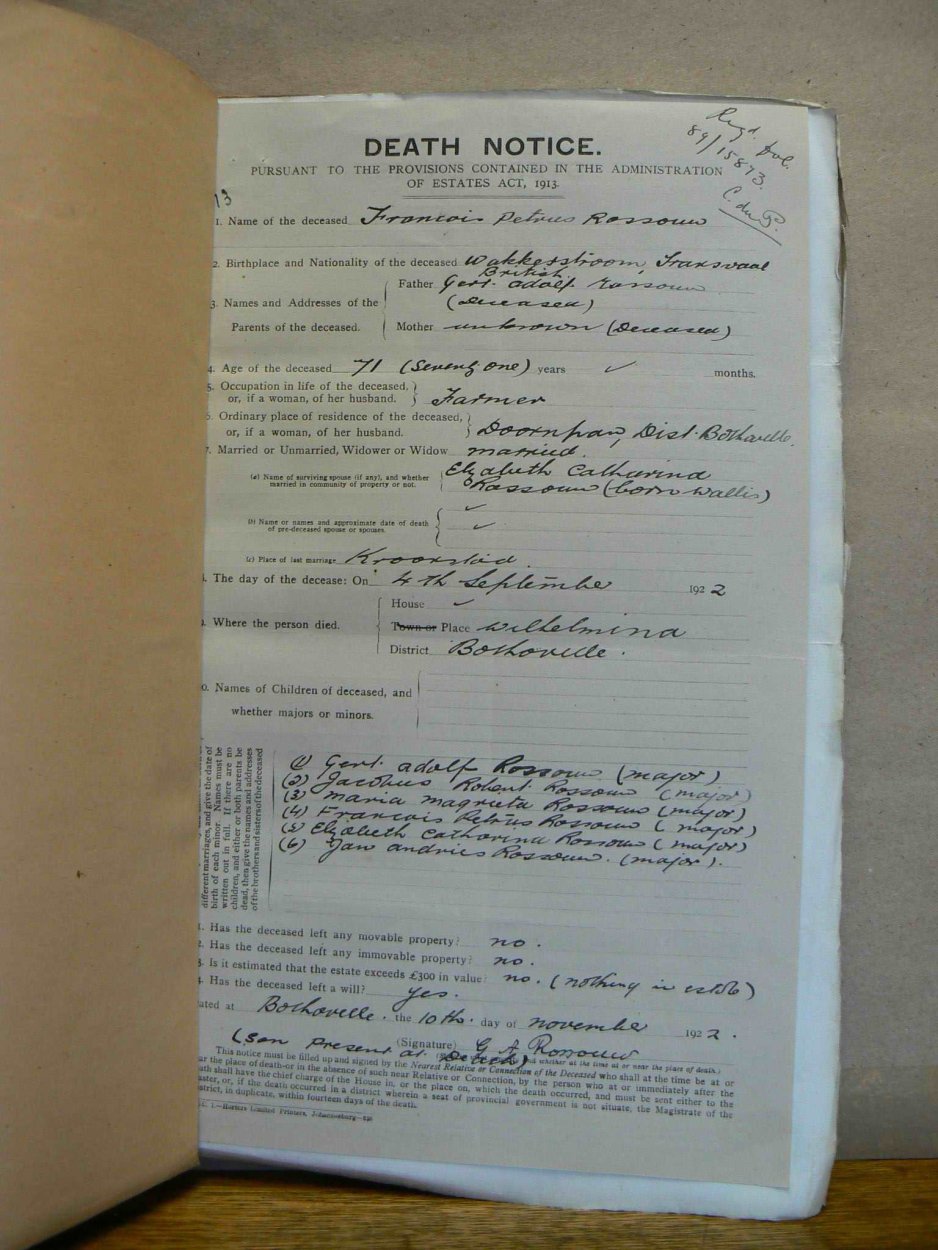 Regd. Avl.
89/15873.
DEATH NOTICE.
PURSUANT TO THE PROVISIONS CONTAINED IN THE ADMINISTRATION
OF ESTATES ACT, 1913.
13
1. Name of the deceased Francois Petrus Rossouw
2. Birthplace and Nationality of the deceased Wakkerstroom, Transvaal
British.
3. Names and Addresses of the Parents of the deceased.
Father Gert Adolf Rossouw
(Deceased)
Mother unknown (Deceased)
4. Age of the deceased 71 (Seventy one) years ✓ months.
5. Occupation in life of the deceased, or, if a woman, of her husband. } Farmer
6. Ordinary place of residence of the deceased, or, if a woman, of her husband. } Doornpan, Dist. Bothaville.
7. Married or Unmarried, Widower or Widow married.
(a) Name of surviving spouse (if any), and whether married in community of property or not.
Elizabeth Catharina
Rossouw (born Wallis)
(b) Name or names and approximate date of death of pre-deceased spouse or spouses.
✓
✓
(c) Place of last marriage Kroonstad.
The day of the decease: On 4th September 1922
9. Where the person died.
House ✓
Town or Place Wilhelmina
District Bothaville.
0. Names of Children of deceased, and
whether majors or minors.
different marriages, and give the date of
birth of each minor. Names must be
written out in full. If there are no
children, and either or both parents be
dead, then give the names and addresses
of the brothers and sisters of the deceased
(1) Gert Adolf Rossouw (major)
(2) Jacobus Robert Rossouw (major)
(3) Maria Magrieta Rossouw (major)
(4) Francois Petrus Rossouw (major)
(5) Elizabeth Catharina Rossouw (major)
(6) Jan Andries Rossouw. (major).
1. Has the deceased left any movable property? no.
2. Has the deceased left any immovable property? no.
3. Is it estimated that the estate exceeds £300 in value? no. (nothing in estate)
4. Has the deceased left a will? yes.
ated at Bothaville. the 10th. day of november 1922.
(Signature) G A Rossouw
(Son present at Death)
and whether at the time at or near the place of death.)
This notice must be filled up and signed by the Nearest Relative or Connection of the Deceased who shall at the time be at or
ar the place of death-or in the absence of such near Relative or Connection, by the person who at or immediately after the
ath shall have the chief charge of the House in, or the place on, which the death occurred, and must be sent either to the
aster, or, if the death occurred in a district wherein a seat of provincial government is not situate, the Magistrate of the
strict, in duplicate, within fourteen days of the death.
1.—Horters Limited Printers, Johannesburg